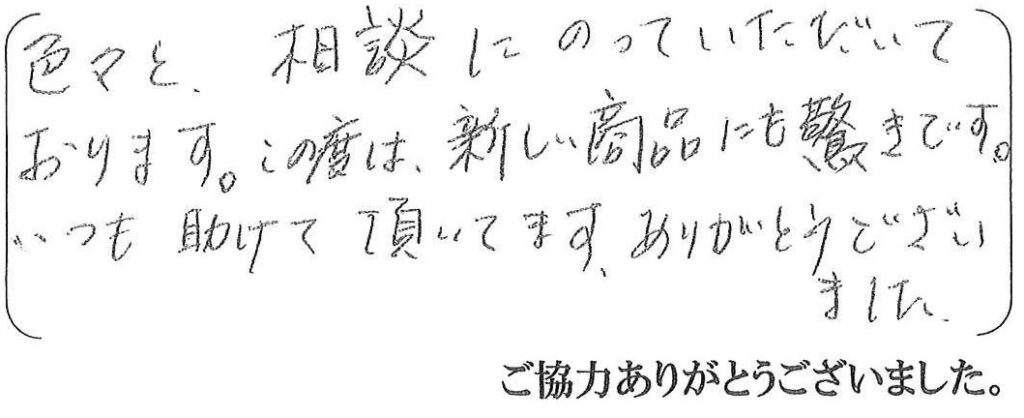 色々と、相談にのっていただいて
おります。この度は、新しい商品にも驚きです。
いつも助けて頂いてます、ありがとうござい
ました、
ご協力ありがとうございました。